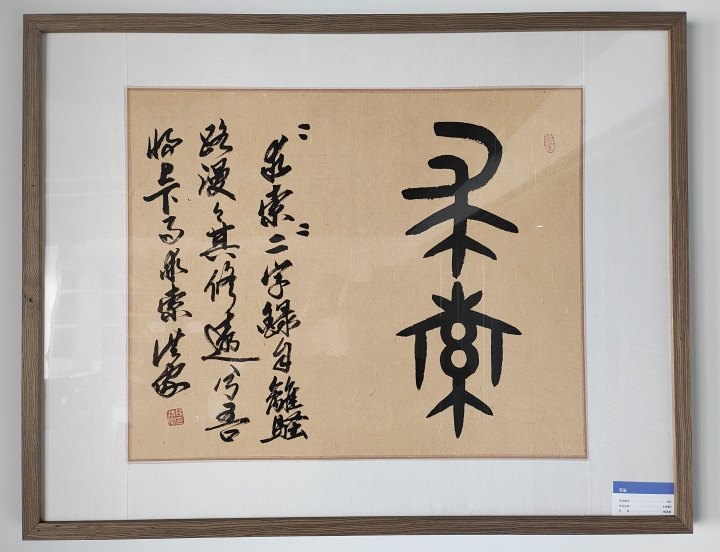 求索
"求索"二字录自離騷
路漫々其修遠兮吾
將上下而求索 洪安